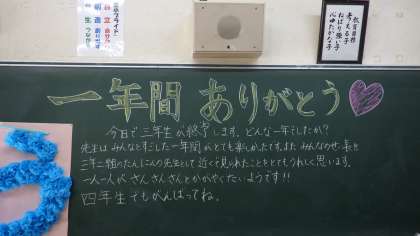 教育目標
考える子
ねばり強い子
心ゆたかな子
一年間 ありがとう
今日で三年生が終了します。どんな一年でしたか?
先生は みんなとすごした一年間がとても楽しかったです。また みんなの成長を
三年二組のたんにんの先生として 近くで見られたことをとてもうれしく思います。
一人一人が さんさんさんとかがやくたいようです!!
四年生でもがんばってね。